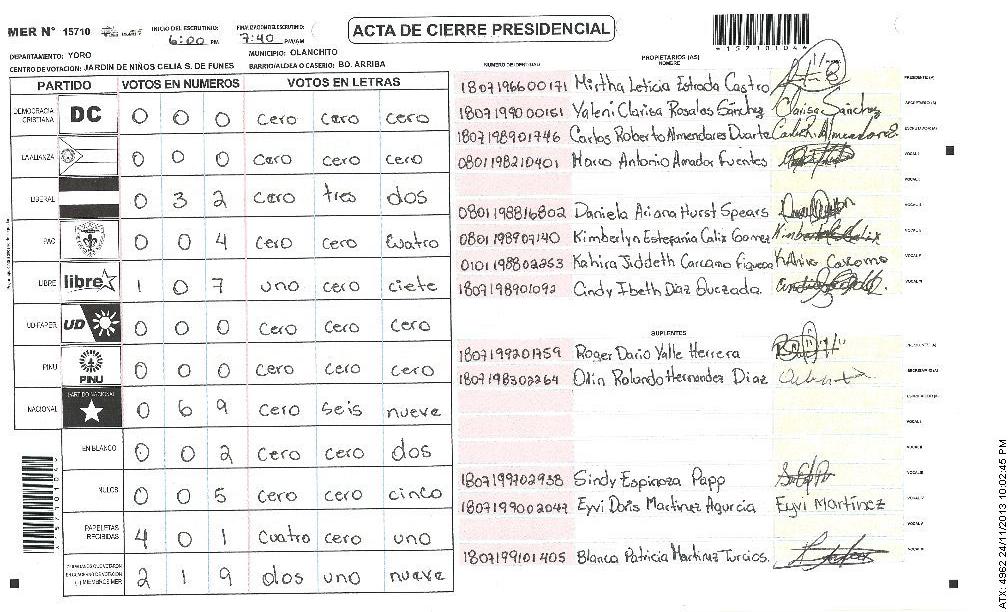 MER Nº 15710
INICIO DEL ESCRUTINIO:
6:00 PM
FINALIZACION ESCRUTINIO:
7:40 PM/AM
ACTA DE CIERRE PRESIDENCIAL
*15710104*
DEPARTAMENTO: YORO
MUNICIPIO: OLANCHITO
CENTRO DE VOTACION: JARDIN DE NIÑOS CELIA S. DE FUNES
BARRIO/ALDEA O CASERIO: BO. ARRIBA
PARTIDO VOTOS EN NUMEROS VOTOS EN LETRAS
DEMOCRACIA CRISTIANA DC 0 0 0 cero cero cero
LA ALIANZA 0 0 0 cero cero cero
LIBERAL 0 3 2 cero tres dos
PAC 0 0 4 cero cero cuatro
LIBRE libre 1 0 7 uno cero ciete
UD FAPER UD 0 0 0 cero cero cero
PINU PINU 0 0 0 cero cero cero
NACIONAL PARTIDO NACIONAL 0 6 9 cero seis nueve
EN BLANCO 0 0 2 cero cero dos
NULOS 0 0 5 cero cero cinco
PAPELETAS RECIBIDAS 4 0 1 cuatro cero uno
2 1 9 dos uno nueve
NUMERO DE IDENTIDAD
PROPIETARIOS (AS)
NOMBRE
1807196600171 Mirtha Leticia Estrada Castro PRESIDENTE (A)
1807199000151 Yaleni Clarisa Rosales Sánchez Clarisa Sánchez SECRETARIO (A)
1807198901746 Carlos Roberto Almendares Duarte ESCRUTADOR (A)
0801198210401 Marco Antonio Amador Fuentes VOCAL I
0801198816802 Daniela Ariana Hurst Spears
0801198907140 Kimberlyn Estefania Calix Gomez
0101198802253 Kahira Jiddeth Carcamo Figueroa
1807198901092 Cindy Ibeth Diaz Quezada.
SUPLENTES
1807199201759 Roger Dario Valle Herrera
1807198302264 Olin Rolando Hernandez Diaz
1807199702938 Sindy Espinoza Papp
1807199002047 Eyvi Doris Martinez Agurcia Eyvi Martínez
1807199101405 Blanca Patricia Martinez Turcios.
ATX: 4962 24/11/2013 10:02:45 PM